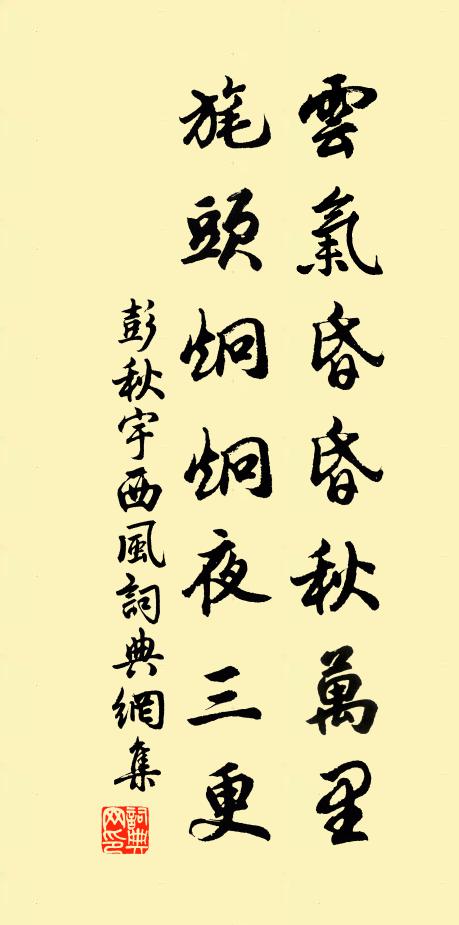 雲氣昏昏秋萬里
旄頭炯炯夜三更
彭秋宇西風詞典網集
詞典网印